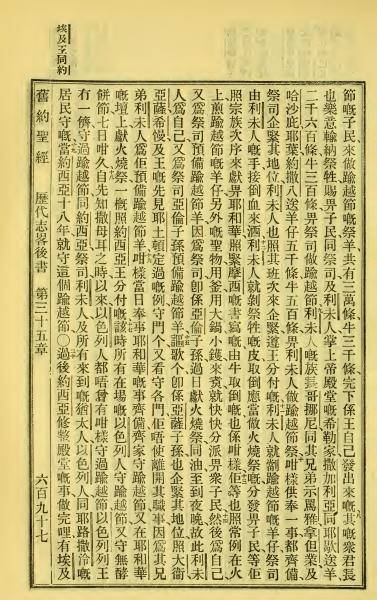 節嘅子民來做踰越節嘅祭羊共有三萬條牛三千條完下係王自己發出來嘅其嘅衆君長
也樂意輸納祭牲賜畀子民同祭司及利未人掌上帝殿堂嘅希勒家撒加利亞同耶歇送羊
二千六百條牛三百條畀祭司做踰越節利未人嘅族長哥挪尼同其兄弟示罵雅拿但業及
哈沙庇耶葉約撒八送羊仔五千條牛五百條畀利未人做踰越節祭咁樣供奉一事都齊備
祭司企緊其地位利未人也照其班次來企緊遵王分付嘅利未人就劏踰越節嘅羊仔祭司
由利未人嘅手接倒血來洒利未人就剝祭牲嘅皮取倒應當做火燒祭嘅分發畀子民等佢
照宗族次序來獻畀耶和華照緊摩西嘅書寫嘅由牛取倒嘅也係咁樣佢等也照常例在火
上煎踰越節嘅羊仔另外嘅聖物用釜用大鍋小鑊來煑就快快分派畀衆子民然後爲自己
又爲祭司預備踰越節羊因爲祭司卽係亞倫子孫過日獻火燒祭同油至到夜晚故此利未
人爲自己又爲祭司亞倫子孫預備踰越節羊謳歌个卽係亞薩子孫也企緊其地位照大衛
亞薩希慢及王嘅先見耶土頓定過嘅例守門个又看守各門佢唔使離開其職事因爲其兄
弟利未人爲佢預備踰越節羊咁樣當日奉事耶和華嘅事齊備齊家守踰越節又在耶和華
嘅壇上獻火燒祭一概照約西亞王分付嘅該時所有在場嘅以色列人守踰越節又守無酵
餅節七日咁久自先知撒母耳之時以來以色列人都唔曾有咁樣守過踰越節以色列列王
有一儕守過踰越節同約西亞祭司利未人及所有來到嘅猶太人以色列人同耶路撒冷嘅
居民守嘅當約西亞十八年就守這個踰越節○過後約西亞修整殿堂嘅事做完哩有埃及
埃及王同約
舊約聖經 歷代志畧後書 第三十五章 六百九十七